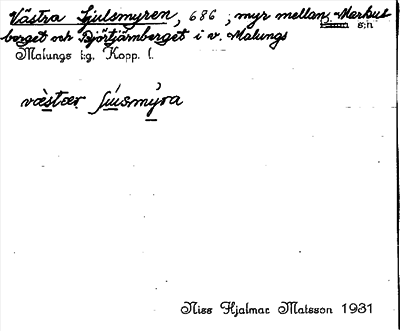 Västra Sjulsmyren, 686; myr mellan Markus
berget och Björtjärnberget i v. Malungs
s:n
Malungs t:g. Kopp. l.
væstær ſúsmýra
Niss Hjalmar Matsson 1931